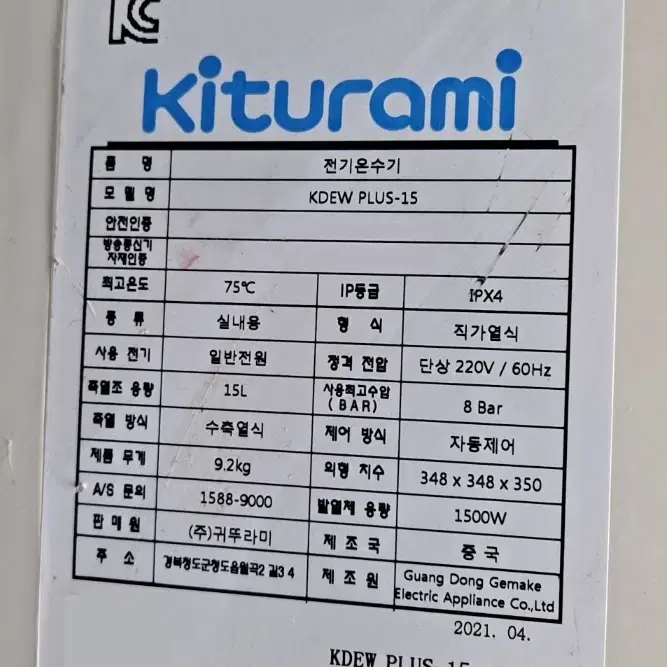 KC
kiturami
품 명 전기온수기
모 델 명 KDEW PLUS-15
안전인증
방송통신기
자재인증
최고온도 75℃ IP등급 IPX4
종 류 실내용 형 식 직가열식
사용 전기 일반전원 정격 전압 단상 220V / 60Hz
축열조 용량 15L 사용최고수압
(BAR) 8 Bar
축열 방식 수축열식 제어 방식 자동제어
제품 무게 9.2kg 외형 치수 348 x 348 x 350
A/S 문의 1588-9000 발열체 용량 1500W
판 매 원 (주)귀뚜라미 제 조 국 중 국
주 소 경북청도군청도읍월곡2 길3 4 제 조 원 Guang Dong Gemake
Electric Appliance Co.,Ltd
2021. 04.
KDEW PLUS-15